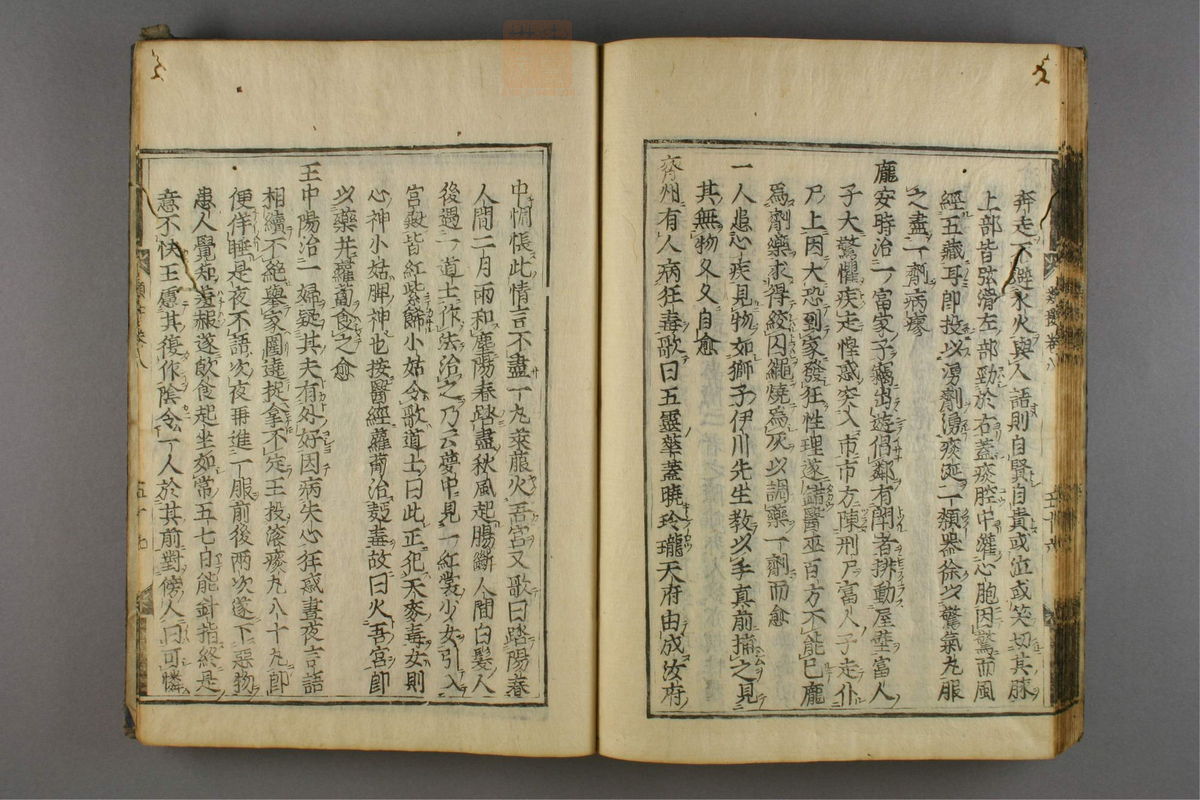 奔走不避水火與人語則自賢自貴或泣或笑切其脉
上部皆弦滑左部勁於右蓋痰腔中灌心胞因驚而風
經五藏耳即投以湧劑湧痰涎一類器徐以驚氣丸服
之盡一劑病瘳
龐安時治一富家子竊出遊倡鄰有鬪者排動屋壁富人
子大驚懼疾走惶惑突入市市方陳刑尸富人子走仆
尸上因大恐到家發狂性理遂錯醫巫百方不能已龐
爲劑藥求得絞囚繩燒爲灰以調藥一劑而愈
一人患心疾見物如獅子伊川先生教以手直前捕之見
其無物久久自愈
齊州有人病狂毒歌曰五靈華蓋曉玲瓏天府由成汝府
中惆悵此情言不盡一丸萊菔火吾宮又歌曰踏陽春
人間二月雨和塵陽春踏盡秋風起腸斷人間白髮人
後遇一道士作法治之乃云夢中見一紅裳少女引入
宮殿皆紅紫飾小姑令歌道士曰此正犯天麥毒女則
心神小姑脾神也按醫經蘿蔔治麫毒故曰火吾宮即
以藥并蘿蔔食之愈
王中陽治一婦疑其夫有外好因病失心狂惑晝夜言語
相續不絕舉家圍遶捉拿不定王投滚痰丸八十丸即
便佯睡是夜不語次夜再進一服前後兩次遂下惡物
患人覺知羞赧遂飲食起坐如常五七日能針指終是
意不快王慮其復作陰令一人於其前對傍人曰可憐